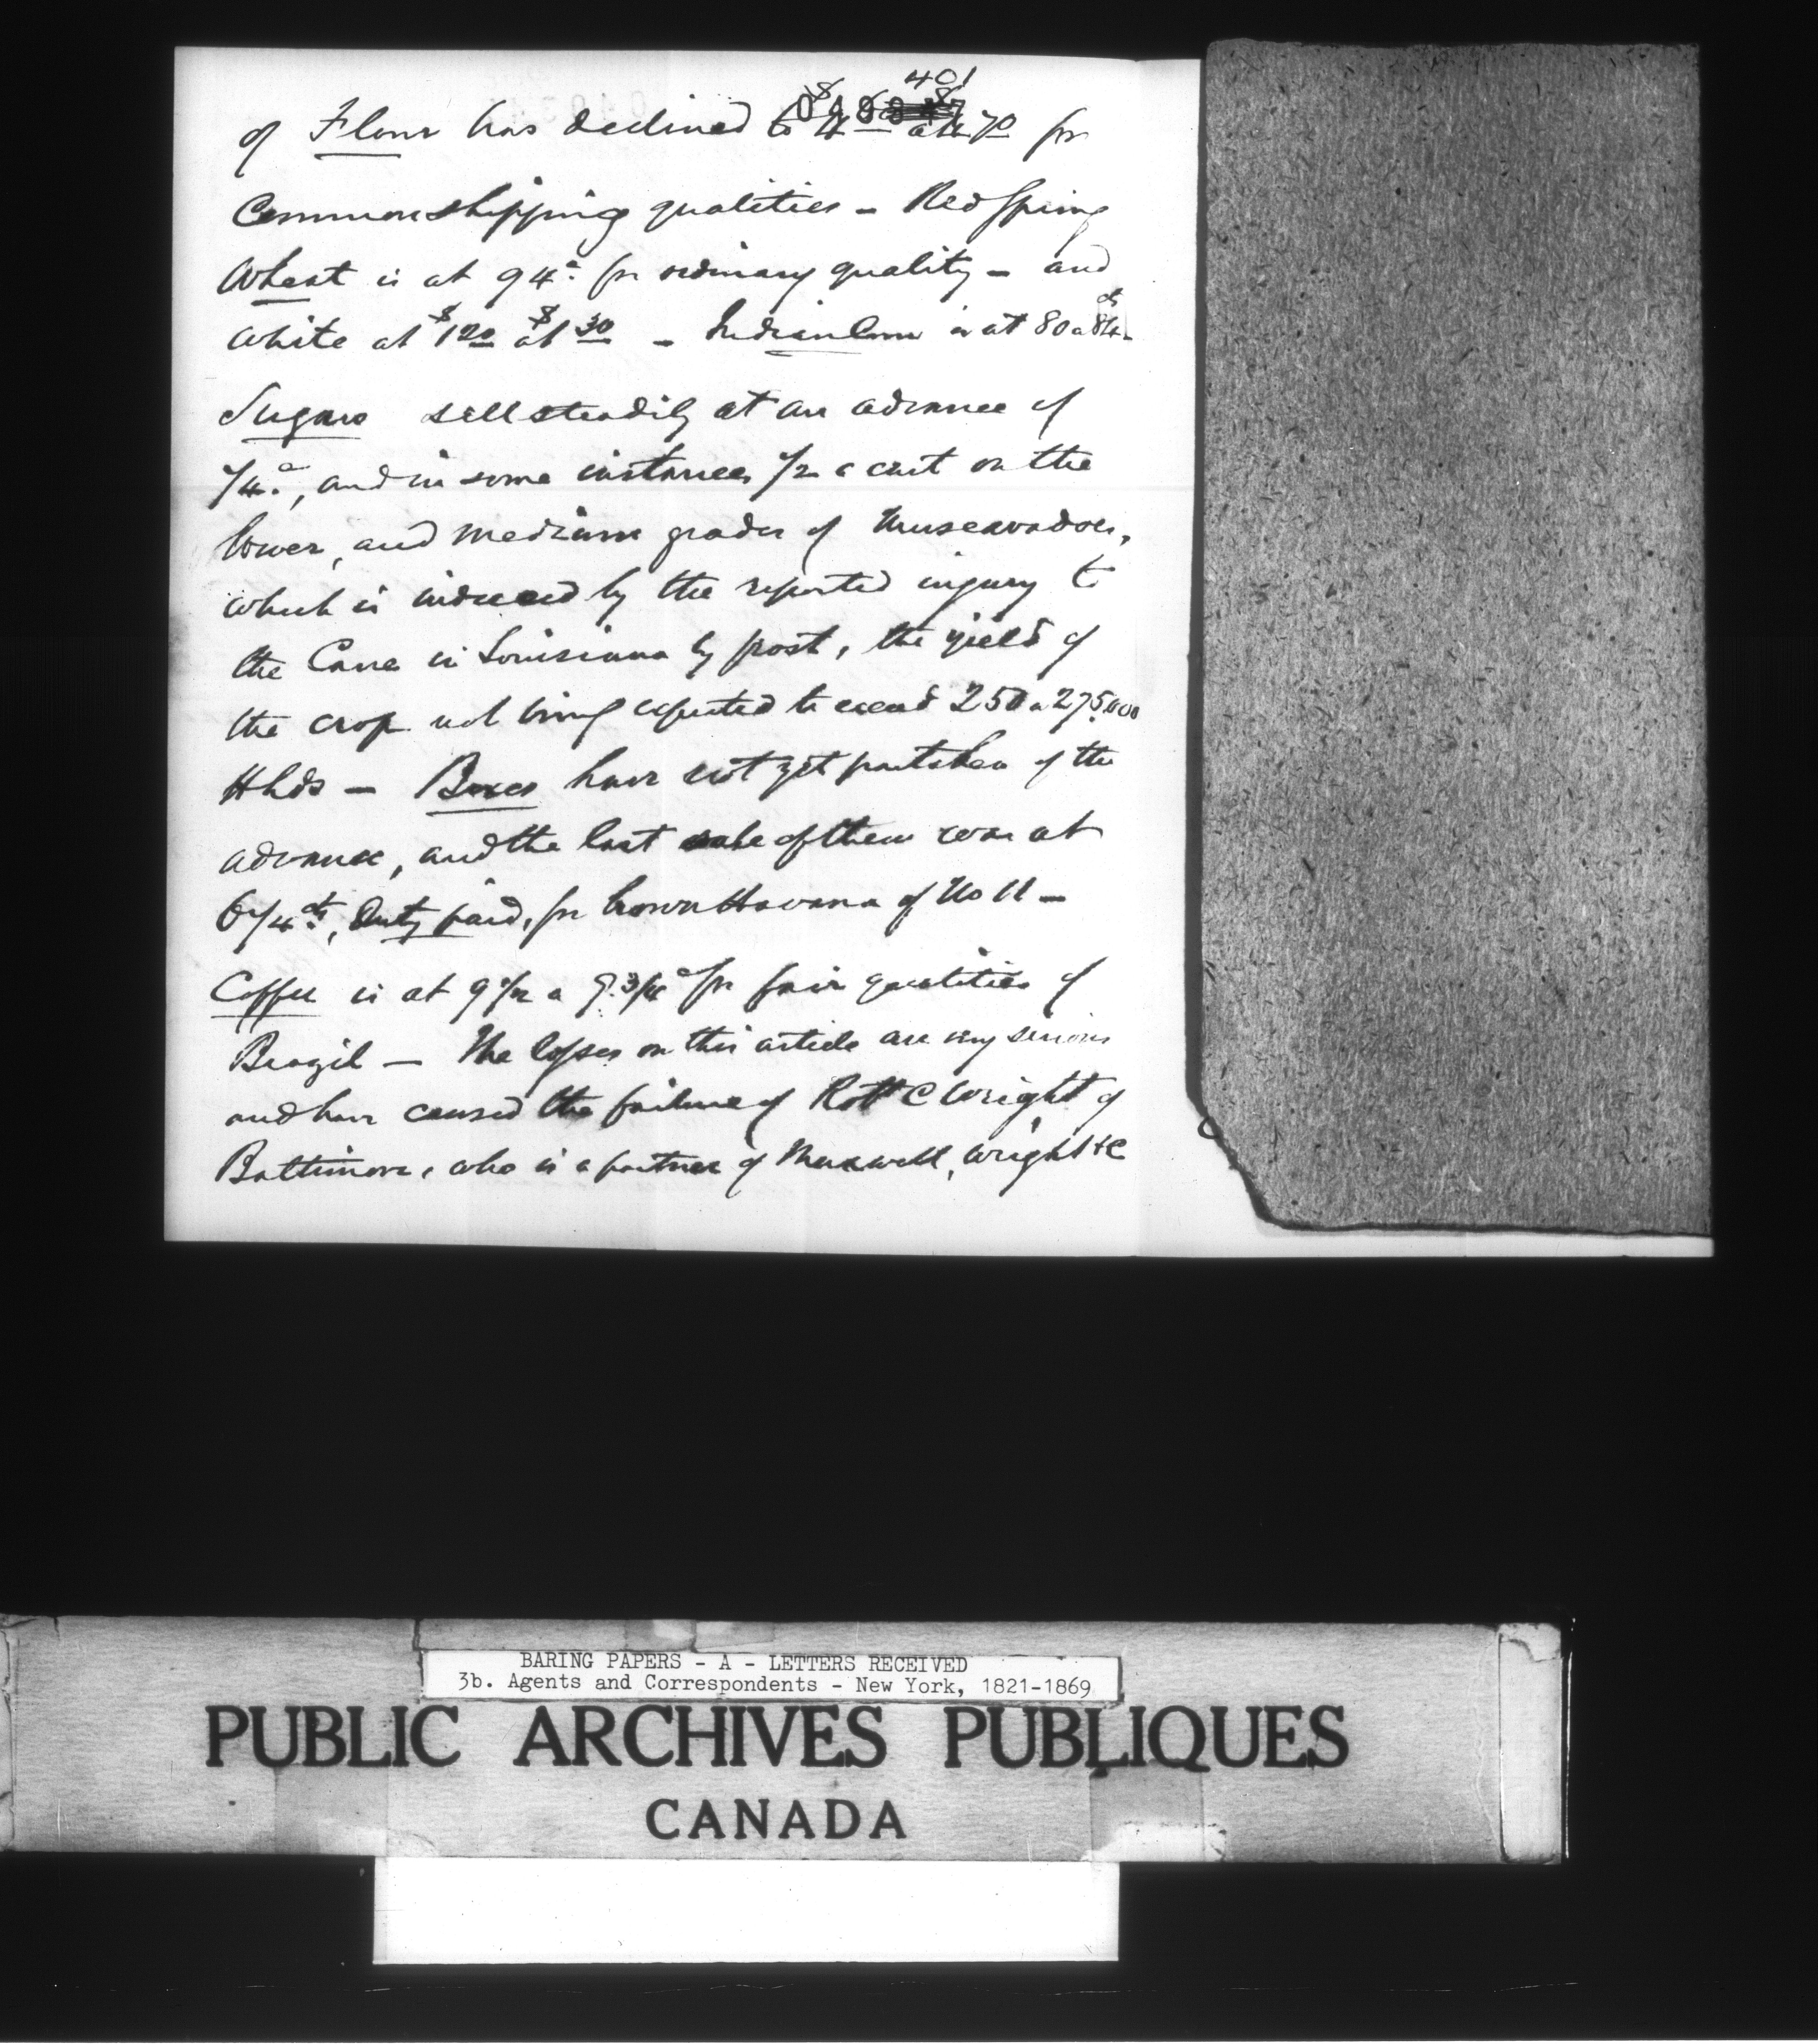 401
of Flour has declined to $4 a $4 70 for
Common shipping qualities - Red Spring
Wheat is at 94 c. for ordinary quality - and
White at $1 20 a $1 30 - Indian Corn is at 80 a 84 cts -
Sugars sell steadily at an advance of
1/4 c., and in some instances 1/2 a cent on the
lower, and medium grades of Muscavadoes,
which is induced by the reported injury to
the Cane in Louisiana by frost, the yield of
the crop not being expected to exceed 250 a 275,000
Hhds - Boxes have not yet partaken of the
advance, and the last sale of them was at
6 1/4 cts, Duty paid, for brown Havana of No 11 -
Coffee is at 9 1/2 a 9 3/4 c for fair qualities of
Brazil - The losses on this article are very serious
and have caused the failure of Robt C Wright of
Baltimore, who is a partner of Maxwell, Wright & C
BARING PAPERS - A - LETTERS RECEIVED
3b. Agents and Correspondents - New York, 1821-1869
PUBLIC ARCHIVES PUBLIQUES
CANADA